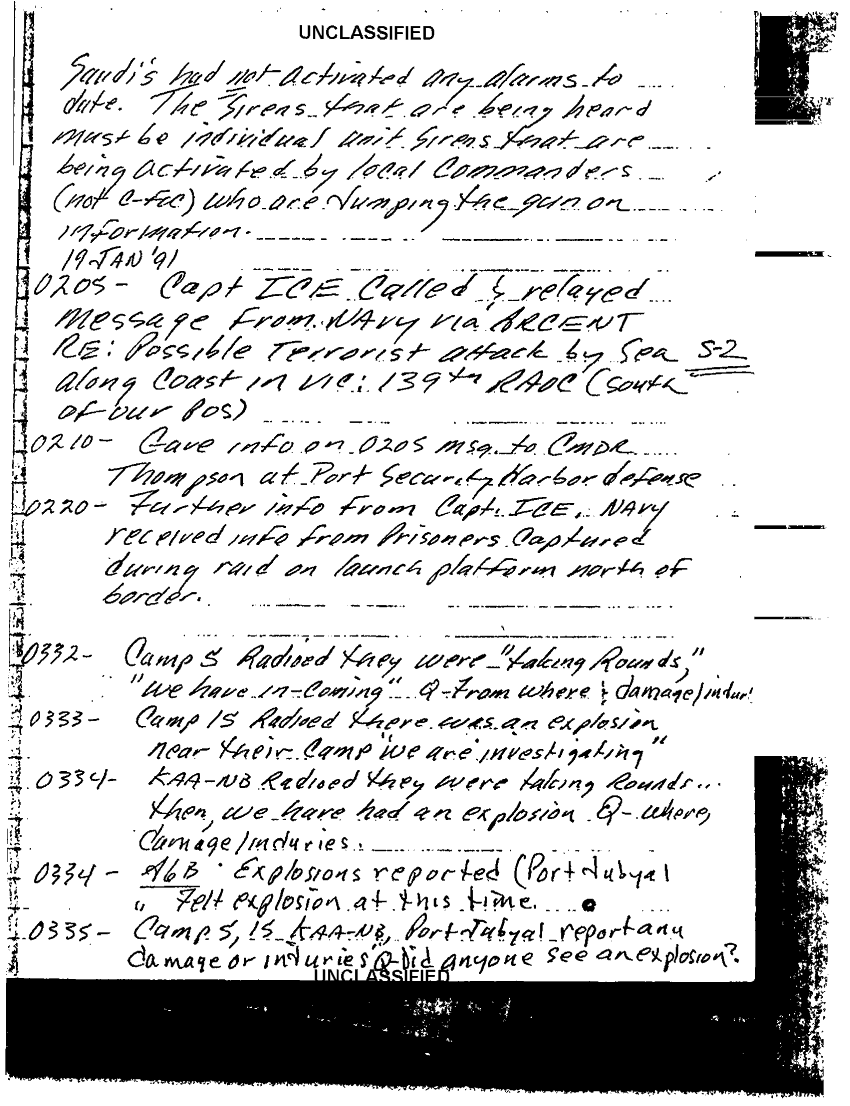 UNCLASSIFIED
Saudi's had not activated any alarms to
date. The sirens that are being heard
must be individual unit sirens that are
being activated by local Commanders
(not C-Fwc) who are Jumping the gun on
information.
19 JAN '91
0205- Capt ICE Called & relayed
message From NAVY via ARCENT
RE: Possible Terrorist attack by Sea S-2
along Coast in vic: 139th RAOC (South
of our pos)
0210- Gave info on 0205 msg. to CMDR
Thompson at Port Security Harbor defense
0220- Further info From Capt. ICE. NAVY
received info from Prisoners Captured
during raid on launch platform north of
border.
0332- Camp 5 Radioed they were "taking Rounds,"
"we have in-coming" Q-From where & damage/injur
0333- Camp 15 Radioed there was an explosion
near their Camp "we are investigating"
0334- KAA-NB Radioed they were taking Rounds...
then, we have had an explosion Q- where,
damage/injuries.
0334- A6B Explosions reported (Port Jubyal
" Felt explosion at this time.
0335- Camp 5, 15 KAA-NB, Port-Jubyal report any
damage or injuries Q-Did anyone see an explosion?
UNCLASSIFIED